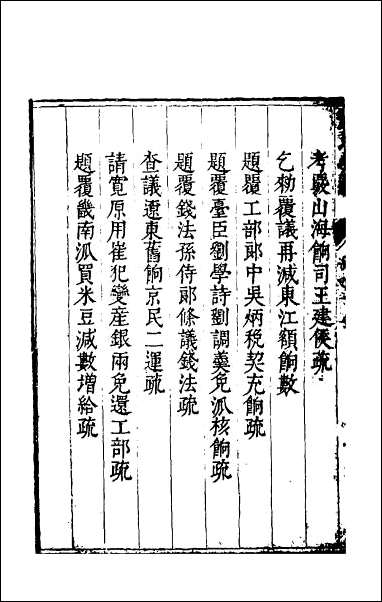 考嚴山海餉司王建侯疏
乞勑覆議再減東江額餉數
題覆工部郎中吳炳稅契充餉疏
題覆臺臣劉學詩劉調羹免派核餉疏
題覆錢法孫侍郎條議錢法疏
查議遼東舊餉京民二運疏
請寬原用崔犯變産銀兩免還工部疏
題覆畿南派買米豆減數增給疏